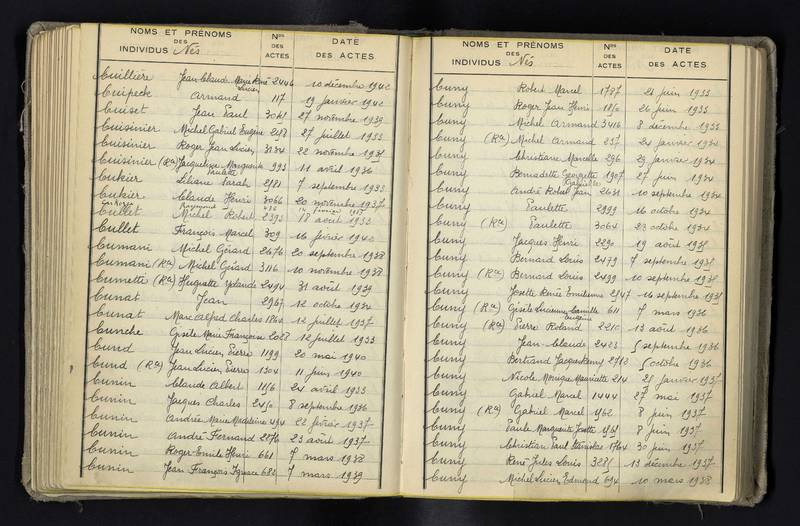 NOMS ET PRÉNOMS DES INDIVIDUS Nés
Nos DES ACTES
DATE DES ACTES
Cuillière Jean Claude Marie René Lucien 2446 10 décembre 1942
Cuipeck Armand 117 19 janvier 1942
Cuiset Jean Paul 3041 27 novembre 1939
Cuisinier Michel Gabriel Eugène 27 juillet 1933
Cuisinier Roger Jean Lucien 3134 22 novembre 1931
Cuisinier (Ron) Jacqueline Marguerite Paulette 993 11 avril 1936
Cukier Liliane Sarah 2181 7 septembre 1933
Cukier Claude Henri 3066 20 novembre 1937
Raymond février 1937
Cullet Michel Robert 2393 18 août 1933
Cullet François Marcel 309 16 février 1940
Cumani Michel Gérard 2676 20 septembre 1938
Cumani (Ron) Michel Gérard 3116 10 novembre 1938
Cumette (Ron) Huguette Yolande 2494 31 août 1939
Cunat Jean 2967 12 octobre 1934
Cunat Marc Alfred Charles 1860 12 juillet 1937
Cunche Gisèle Marie Françoise 2028 12 juillet 1933
Cund Jean Lucien Pierre 1199 20 mai 1940
Cund (Ron) Jean Lucien Pierre 1304 11 juin 1940
Cunin Claude Albert 1116 24 avril 1933
Cunin Jacques Charles 8 septembre 1936
Cunin Andrée Marie Madeleine 494 22 février 1937
Cunin André Fernand 2876 23 août 1937
Cunin Roger Emile Henri 661 7 mars 1938
Cunin Jean François Ignace 682 7 mars 1939
NOMS ET PRÉNOMS DES INDIVIDUS Nés
Nos DES ACTES
DATE DES ACTES
Cuny Robert Marcel 1787 21 juin 1933
Cuny Roger Jean Henri 26 juin 1933
Cuny Michel Armand 3416 8 décembre 1933
Cuny (Ron) Michel Armand 237 24 janvier 1934
Cuny Christiane Marcelle 296 29 janvier 1934
Cuny Bernadette Georgette Gabrielle 1907 27 juin 1934
Cuny André Robert Jean 2631 10 septembre 1934
Cuny Paulette 2999 16 octobre 1934
Cuny (Ron) Paulette 3064 23 octobre 1934
Cuny Jacques Henri 2290 19 août 1935
Cuny Bernard Louis 2479 7 septembre 1935
Cuny (Ron) Bernard Louis 2499 10 septembre 1935
Cuny Josette Renée Emilienne 2547 16 septembre 1935
Cuny (Ron) Gisèle Lucienne Camille Eugénie 611 7 mars 1936
Cuny (Ron) Pierre Roland 2210 13 août 1936
Cuny Jean-Claude 2423 5 septembre 1936
Cuny Bertrand Jacques Remy 2712 5 octobre 1936
Cuny Nicole Monique Mauricette 214 25 janvier 1937
Cuny Gabriel Marcel 1444 27 mai 1937
Cuny (Ron) Gabriel Marcel 1562 8 juin 1937
Cuny Paule Marguerite Josette 1561 8 juin 1937
Cuny Christian Paul Stanislas 1764 30 juin 1937
Cuny René Jules Louis 3285 13 décembre 1937
Cuny Michel Lucien Edmond 694 10 mars 1938